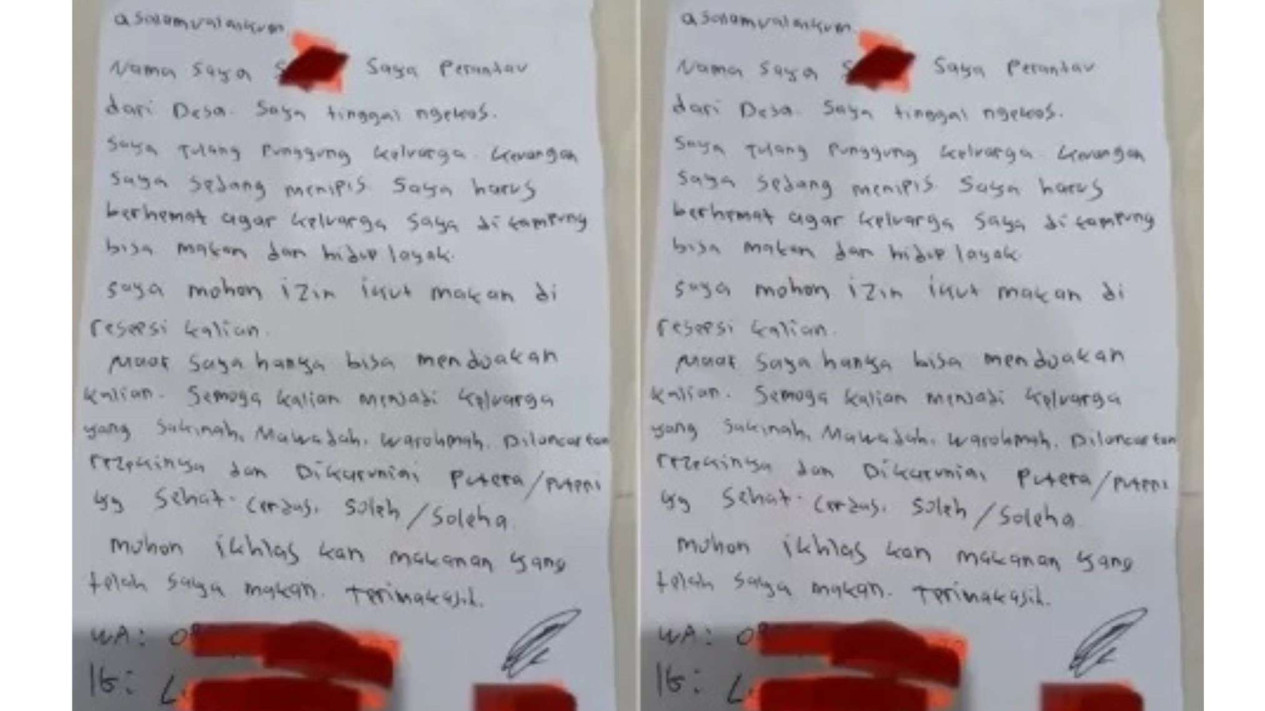 asalamualaikum
Nama saya S Saya Perantau
dari Desa. Saya tinggal ngekos.
Saya Tulang Punggung keluarga. keuangan
saya sedang menipis. Saya harus
berhemat agar keluarga saya di kampung
bisa makan dan hidup layak.
saya mohon izin ikut makan di
resepsi kalian.
Maaf saya hanya bisa mendoakan
kalian. Semoga kalian menjadi keluarga
yang Sakinah, Mawadah, warohmah. Dilancarkan
rezekinya dan Dikaruniai Putera/Puteri
yg Sehat. Cerdas. Soleh/Soleha.
mohon ikhlas kan makanan yang
telah saya makan. Terimakasih.
WA: 0
IG: L.
asalamualaikum
Nama saya S Saya Perantau
dari Desa. Saya tinggal ngekos.
Saya Tulang Punggung keluarga. keuangan
saya sedang menipis. Saya harus
berhemat agar keluarga saya di kampung
bisa makan dan hidup layak.
saya mohon izin ikut makan di
resepsi kalian.
Maaf saya hanya bisa mendoakan
kalian. Semoga kalian menjadi keluarga
yang Sakinah, Mawadah, warohmah. Dilancarkan
rezekinya dan Dikaruniai Putera/Puteri
yg Sehat. Cerdas. Soleh/Soleha.
mohon ikhlas kan makanan yang
telah saya makan. Terimakasih.
WA: 0
IG: L.